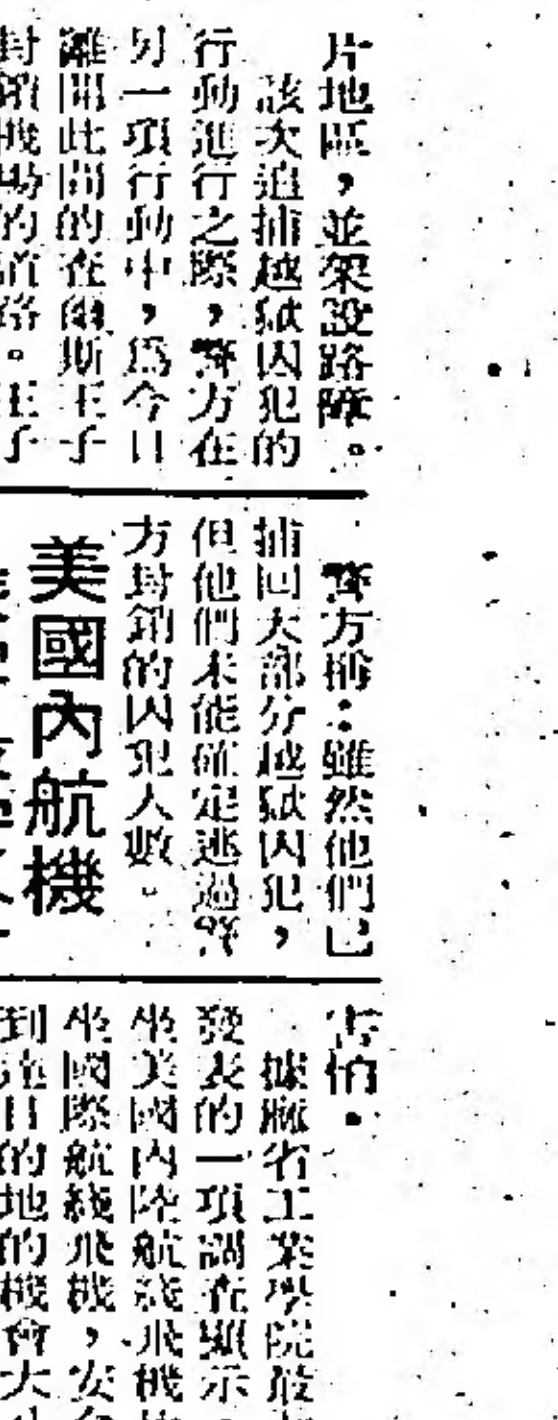 片地區，並架設路障。
該次追捕越獄囚犯的
行動進行之際，警方在
另一項行動中，爲今日
離開此間的查爾斯王子
封鎖機場的道路。王子
警方稱：雖然他們已
捕回大部分越獄囚犯，
但他們未能確定逃過警
方封鎖的囚犯人數。
美國內航機
害怕。
據麻省工業學院最
發表的一項調查顯示，
坐美國內陸航綫飛機
坐國際航綫飛機，安全
到達目的地的機會大